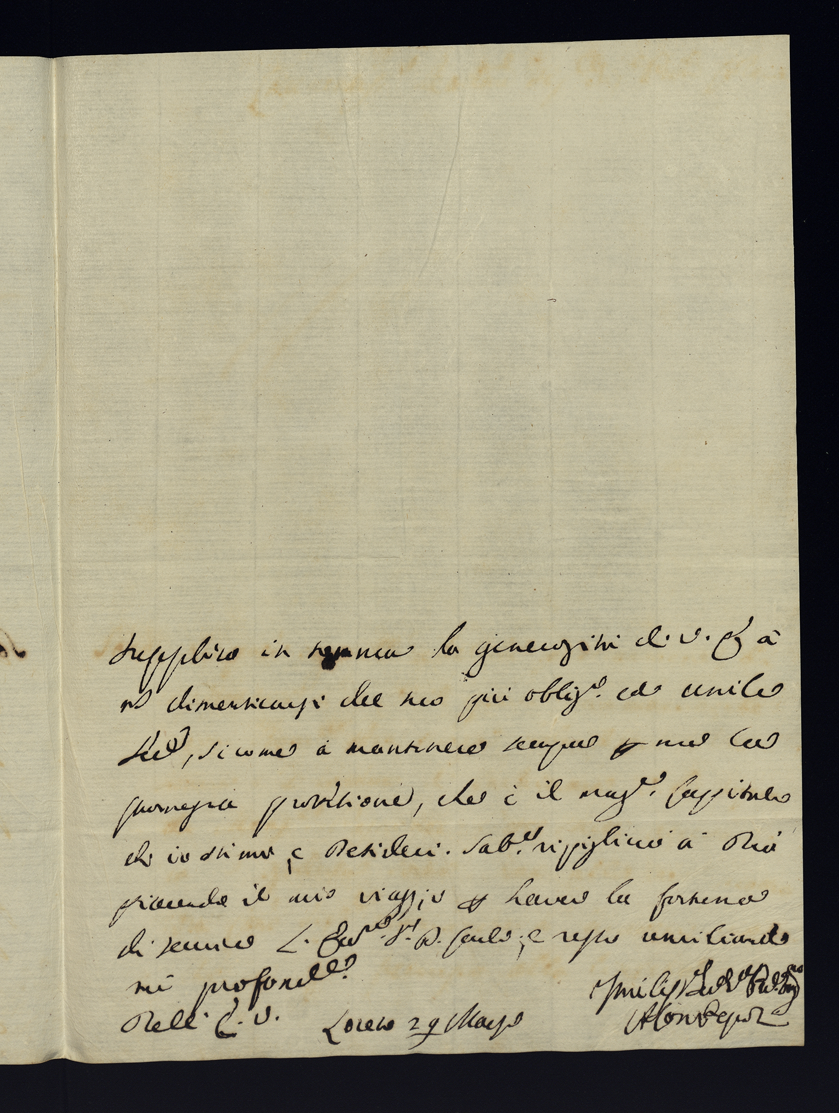 supplico in somma la generosità di V. E. à
nõ dimenticarsi del suo più oblig.º ed umile
Ser.e, sicome à mantenere sempre p me la
promessa protetione, che è il mag.r Capitale
che io stimi, e desideri. Sab.º ripiglierò à Dio
piacendo il mio viaggio p havere la fortuna
di servire L. Ecc.mo S.r D. Carlo; e resto umiliando
mi profond.te
Dell' E. V. Loreto 29 Maggio
Umiliss.